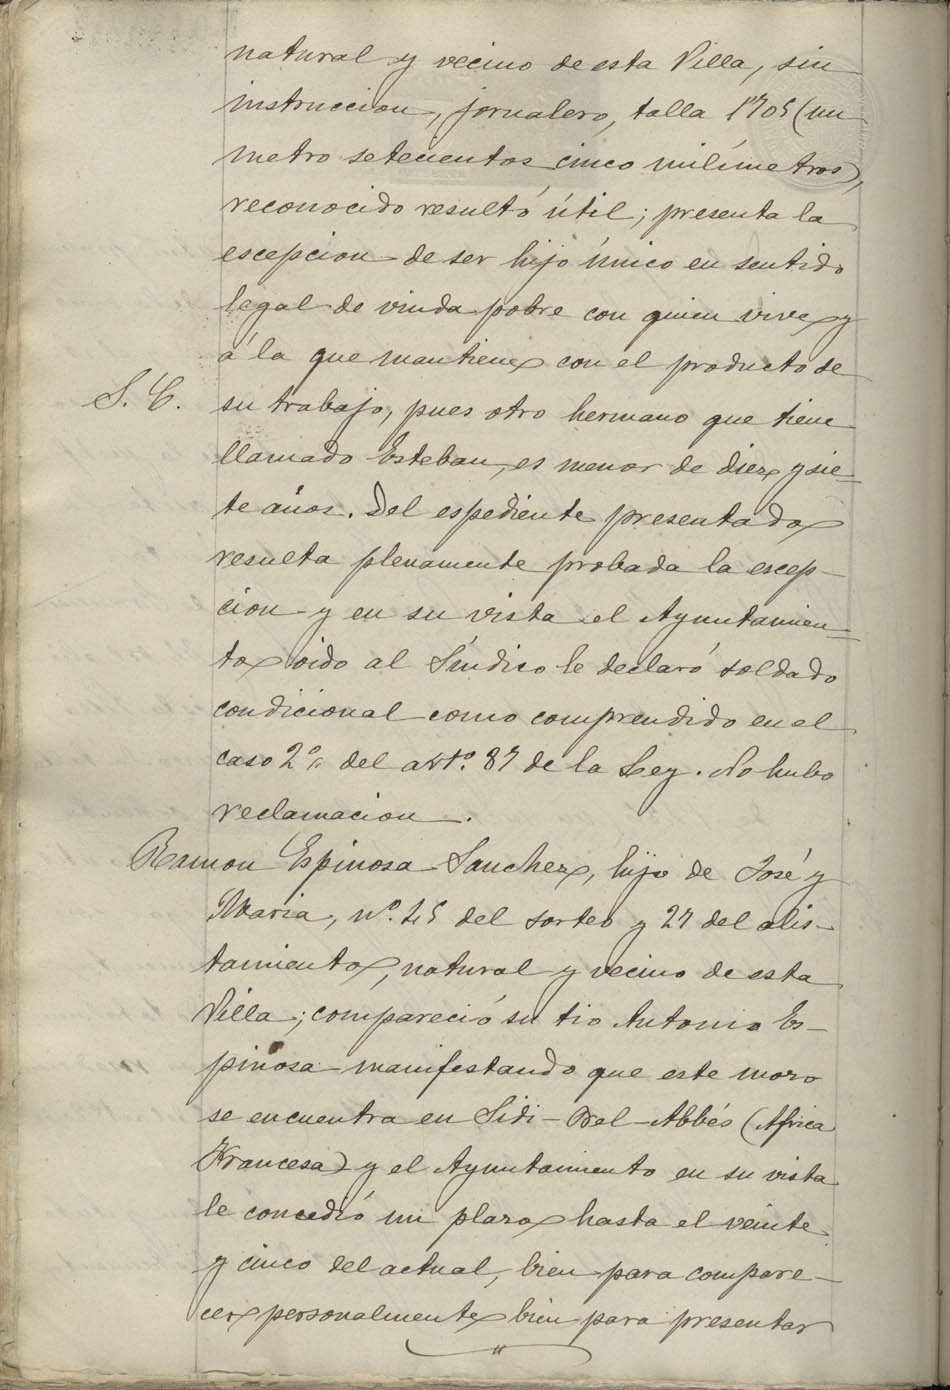 natural y vecino de esta Villa, sin
instruccion, jornalero, talla 1'705 (un
metro setecientos cinco milímetros),
reconocido resultó útil; presenta la
escepcion de ser hijo único en sentido
legal de viuda pobre con quien vive y
á la que mantiene con el producto de
S. C. su trabajo, pues otro hermano que tiene
llamado Esteban, es menor de diez y sie=
te años. Del espediente presentado
resulta plenamente probada la escep-
cion y en su vista el Ayuntamien=
to oido al Síndico le declaró soldado
condicional como comprendido en el
caso 2º del artº. 87 de la Ley. No hubo
reclamacion.
Ramon Espinosa Sanchez, hijo de José y
Maria, nº. 45 del sorteo y 27 del alis-
tamiento, natural y vecino de esta
Villa; compareció su tio Antonio Es-
pinosa manifestando que este mozo
se encuentra en Sidi-Bel-Abbés (Africa
Francesa) y el Ayuntamiento en su vista
le concedió un plazo hasta el veinte
y cinco del actual, bien para compare-
cer personalmente bien para presentar